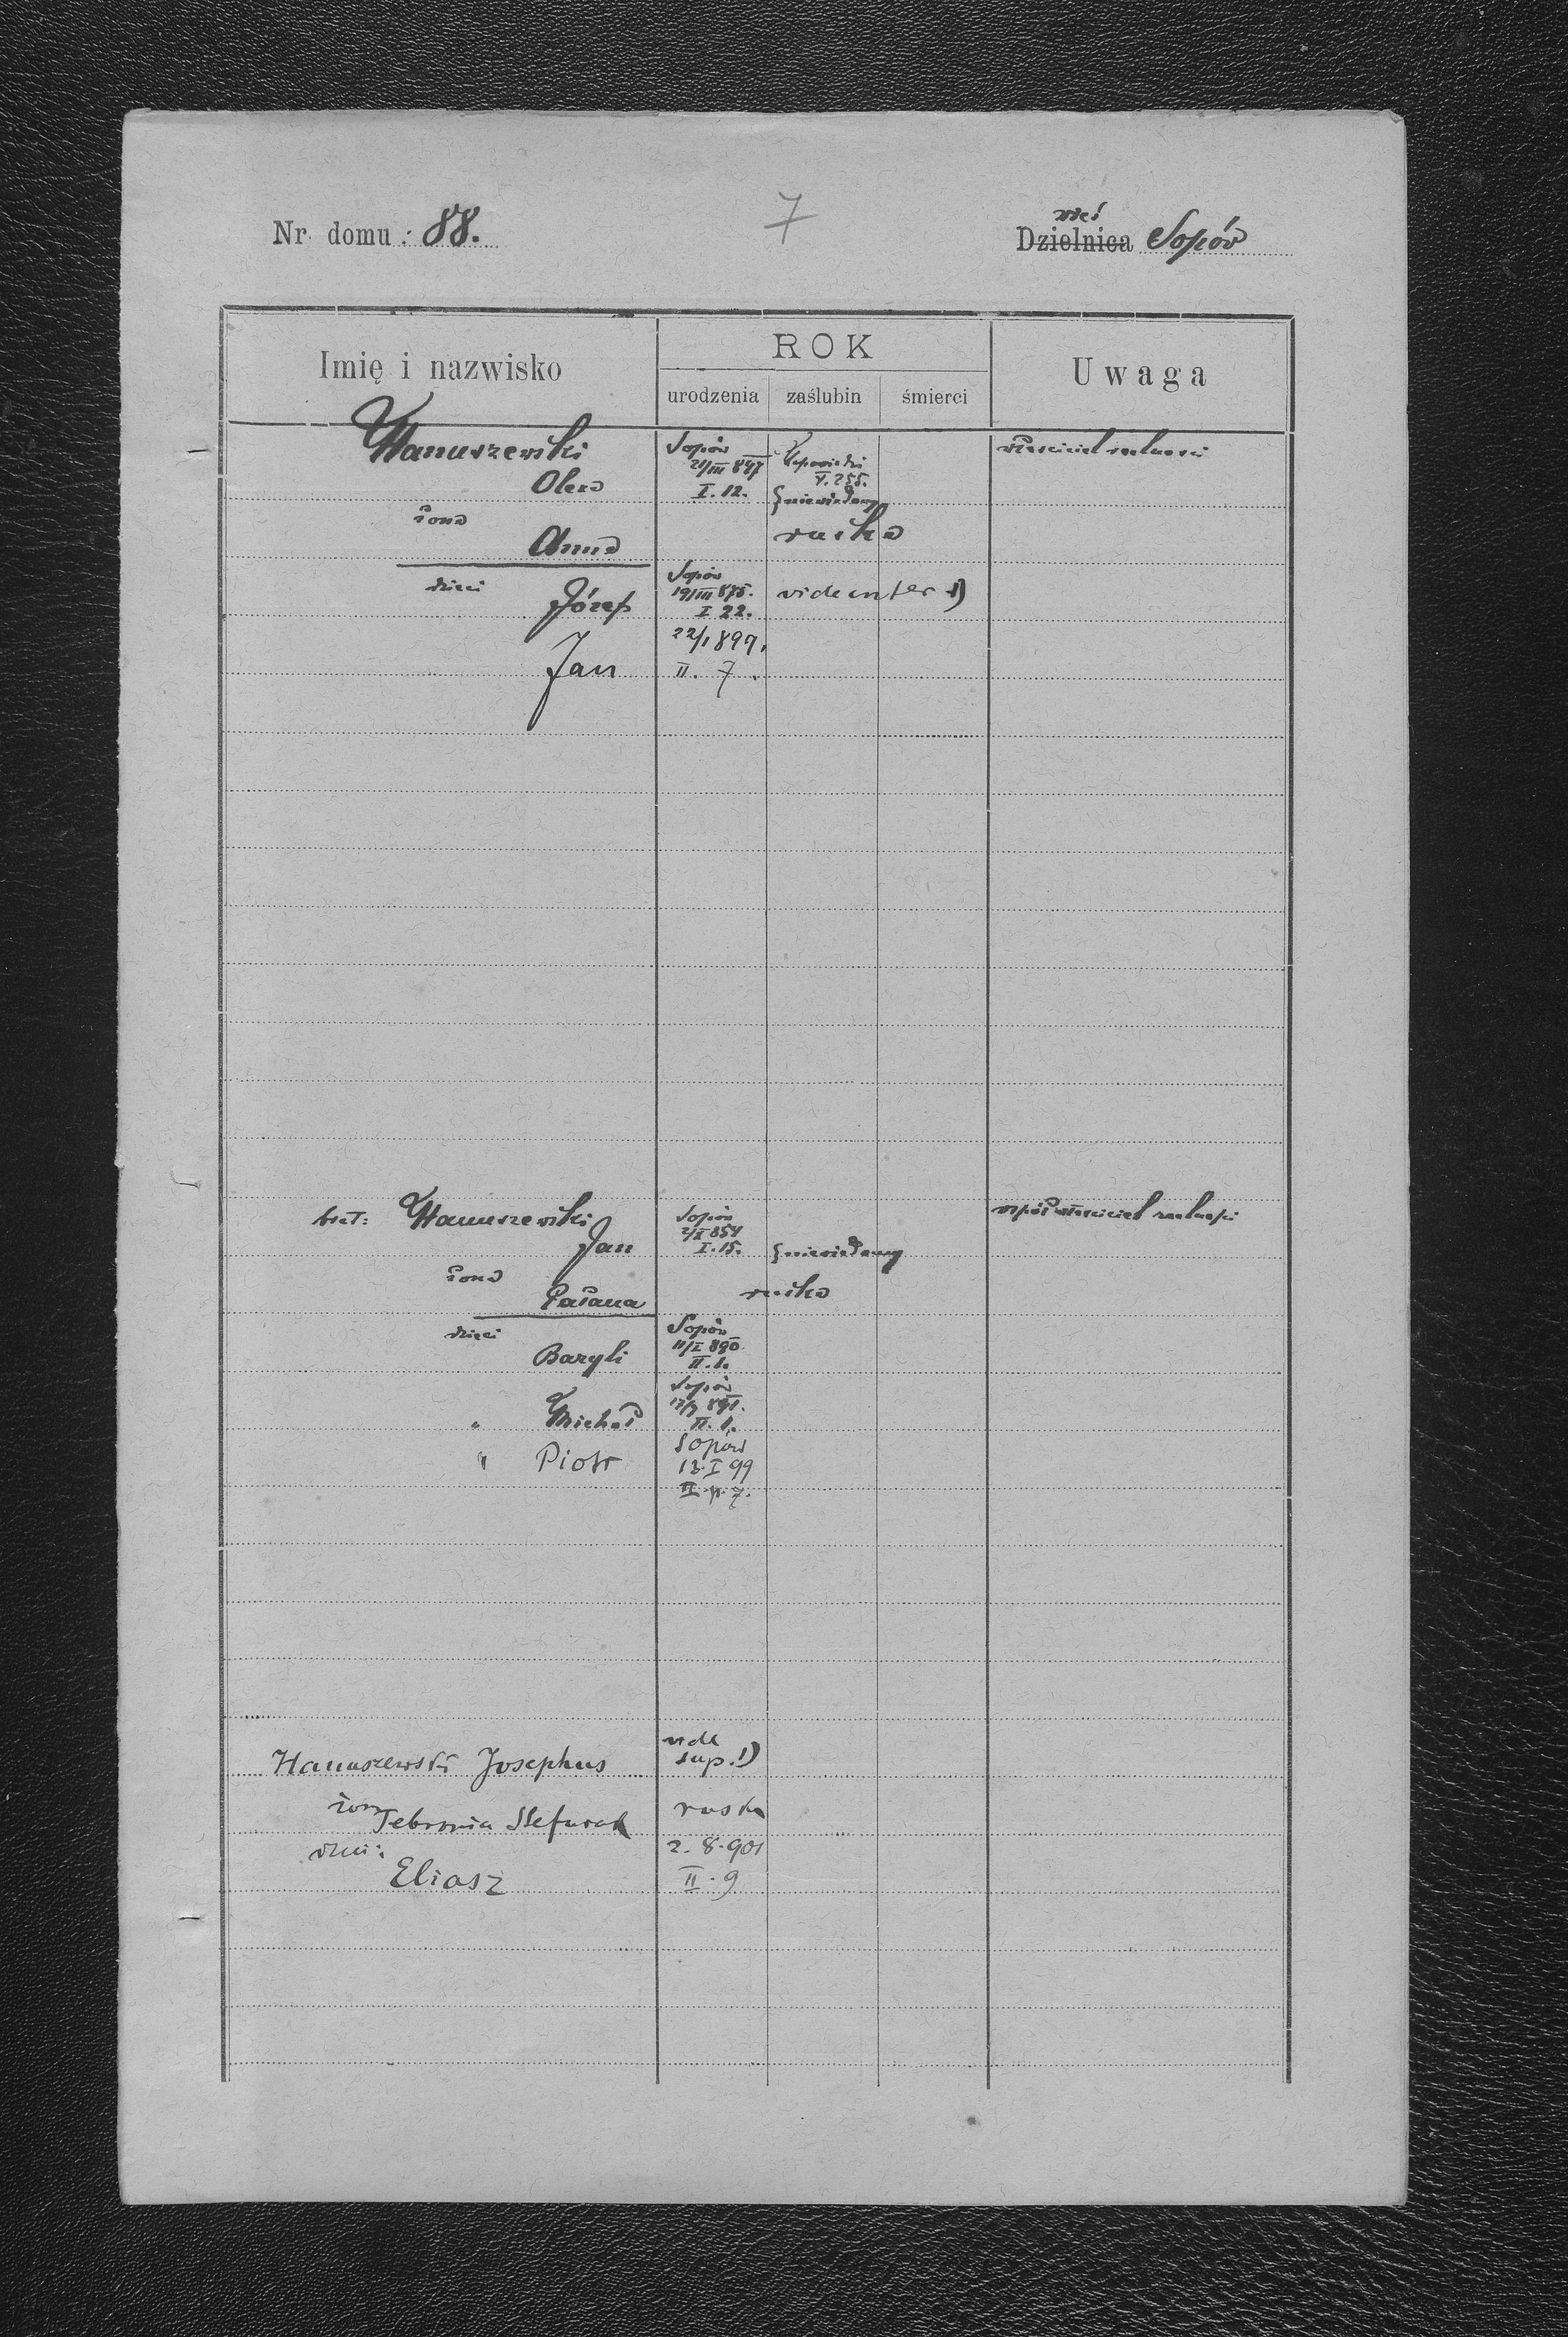 7
wieś
Nr. domu: 88. Dzielnica Sopów
Imię i nazwisko
ROK
urodzenia zaślubin śmierci
Uwaga
Hanuszewski Sopów Zapowiedzi właściciel realności
21/III 847 V. 255.
Olexa I. 12. Śniewidany
żona
Anna ruska
dzieci Sopów
Józef 19/III 875. vide inter 1)
I 22.
Jan 22/1 899.
II. 7.
brat: Hanuszewski Sopów współwłaściciel realności
2/I 854
Jan I. 15.
żona
Parana ruska
dzieci Sopów
Bazyli 11/I 890.
II. 1.
Sopów
" Michał 891.
II. 1.
" Piotr Sopów
13.I 99
II. p. 7.
Hanuszewski Josephus vide
sup. 1)
żona Febronia Stefurak ruska
dzieci: 2. 8. 901
Eliasz II. 9